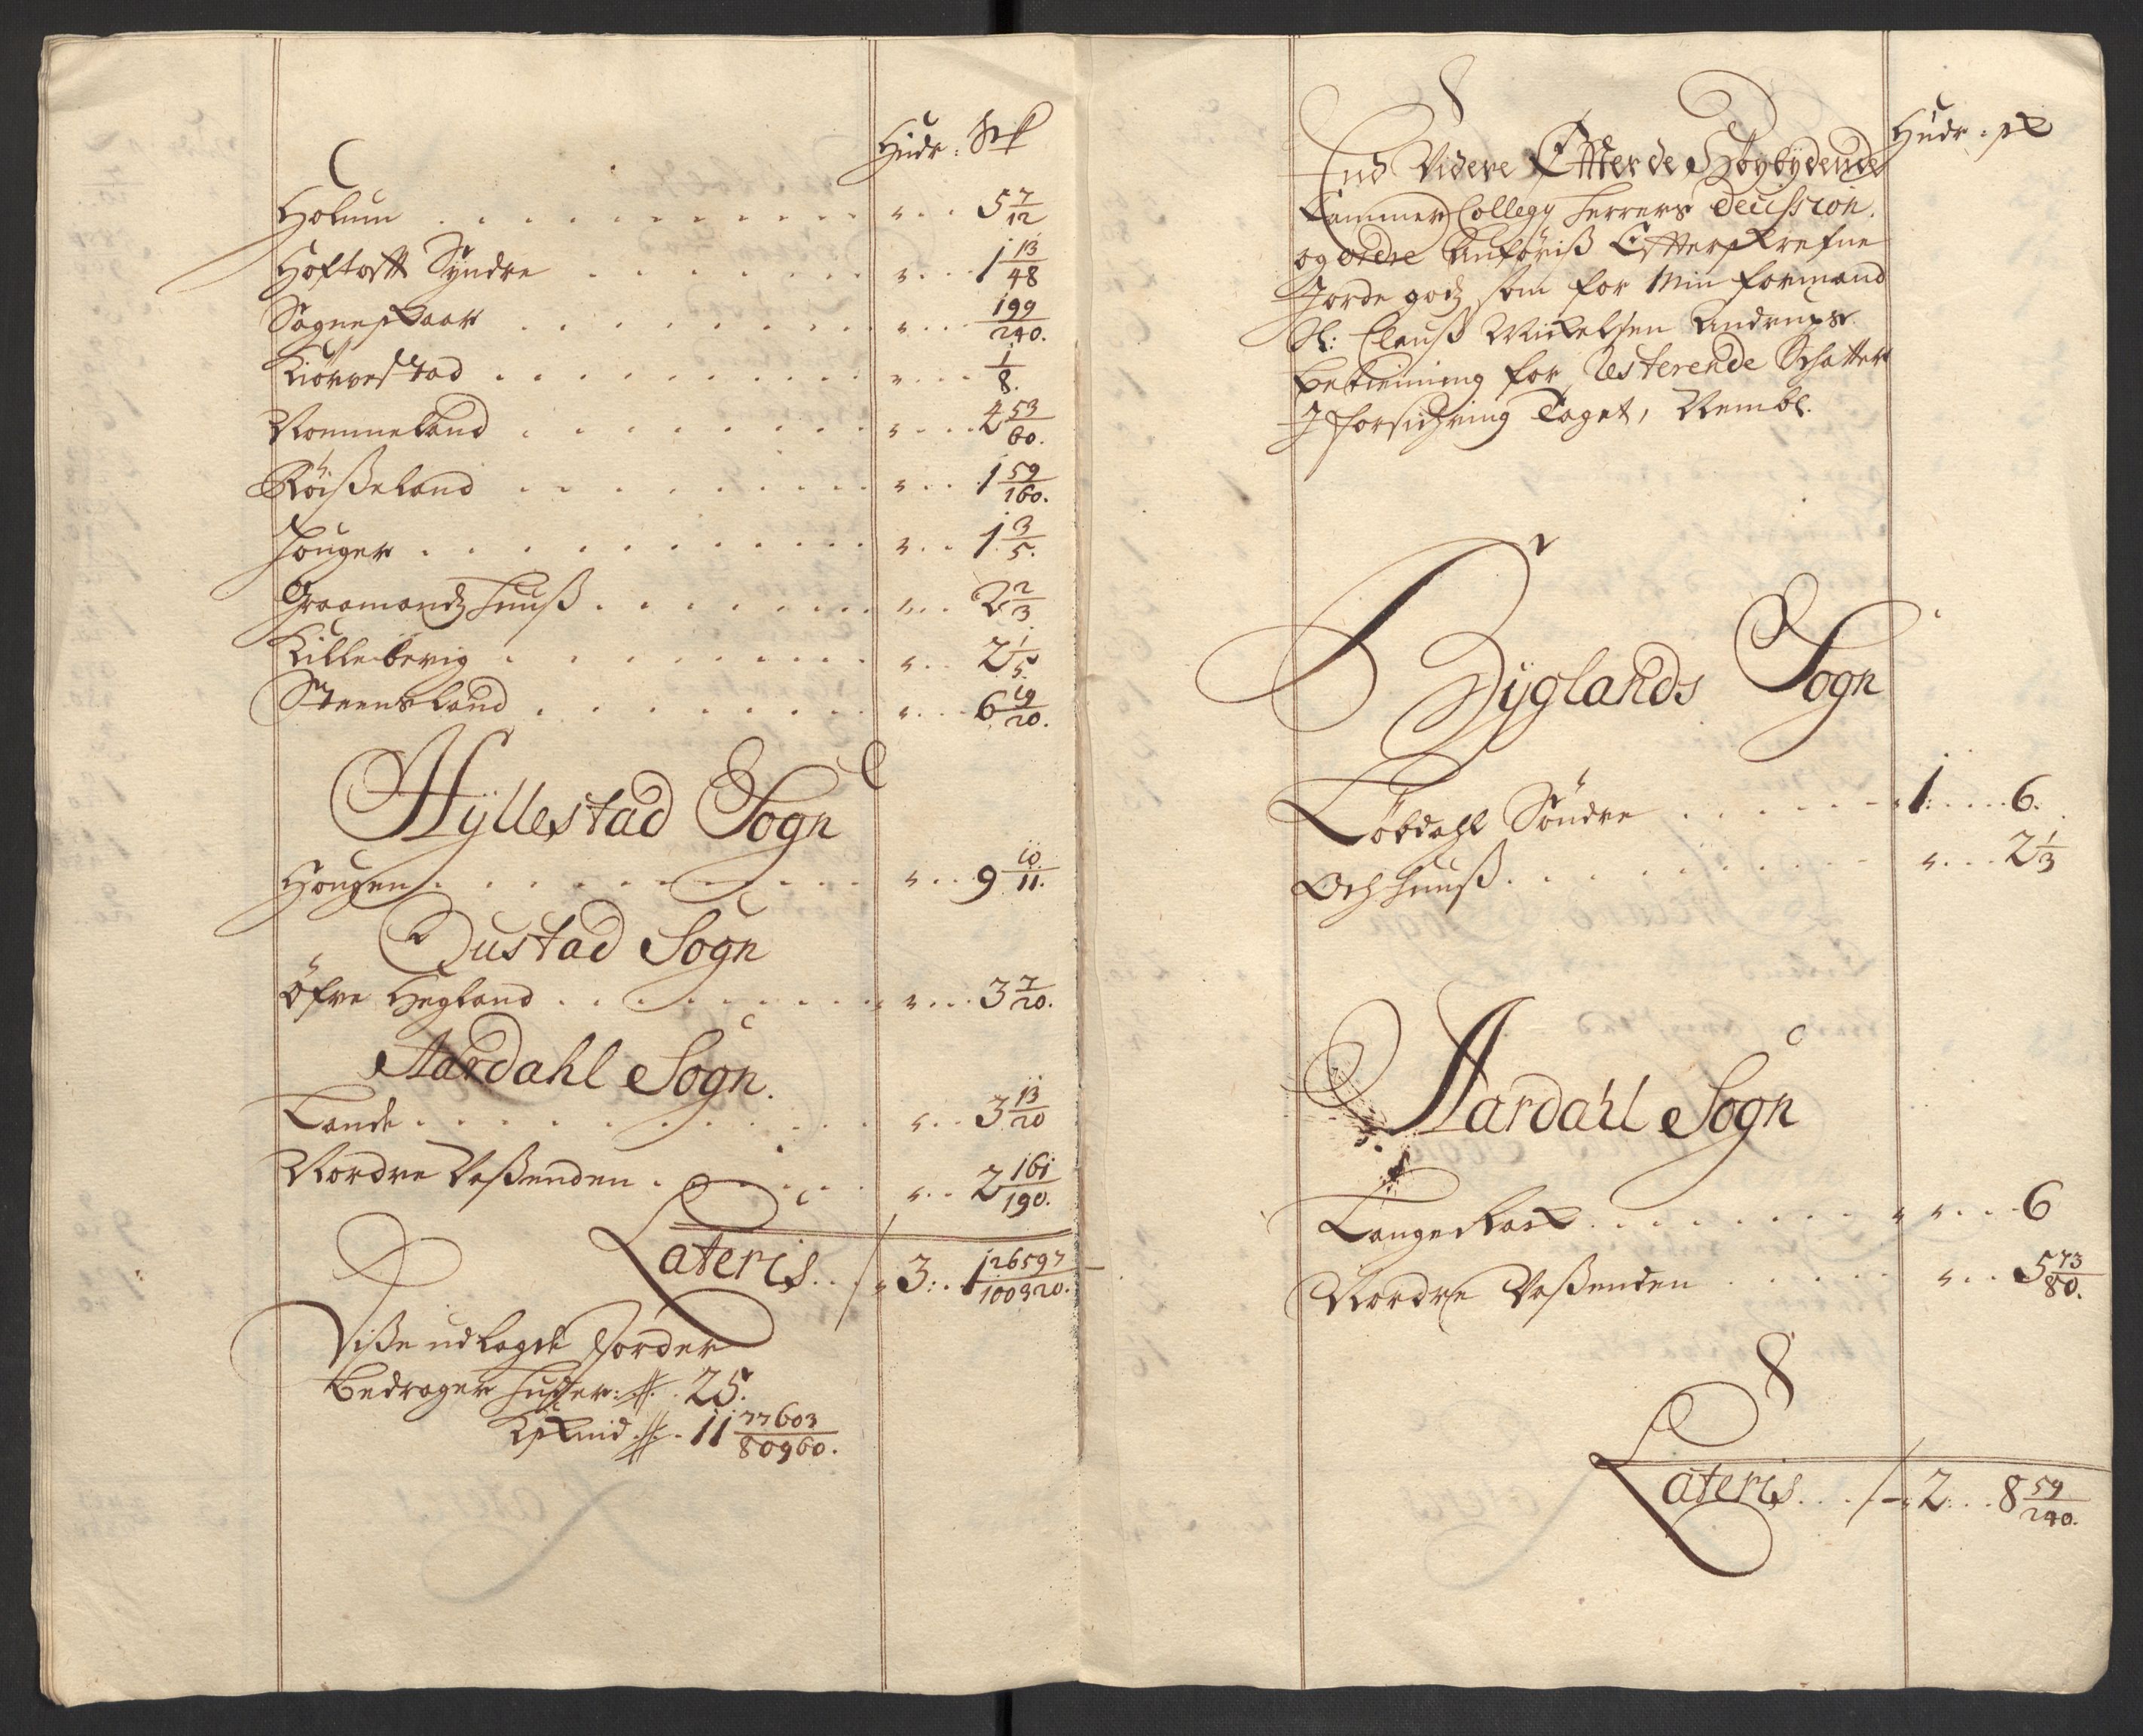 Hudr: Skl
Holum . . . . . . . . . . . . „ . . 5 7/12
Hoftofft Syndre . . . . . . . . „ . . 1 13/48
Sogneskaar . . . . . . . . . „ . . 199/240.
Kiørrestad . . . . . . . . . „ . . 1/8.
Nommeland . . . . . . . . „ . . 2 53/60.
Röisseland . . . . . . . . . „ . . 1 59/160.
Houger . . . . . . . . . . . „ . . 1 3/5.
Graamandz Huuß . . . . . . . „ . . 2 2/3
Killebergig . . . . . . . . . „ . . 2 1/5.
Steensland . . . . . . . . „ . . 6 19/20.
Hyllestad Sogn
Hougen . . . . . . . . . . . „ . . 9 10/11.
Oustad Sogn
Öfre Hegland . . . . . . . . „ . . 3 7/20.
Aardahl Sogn.
Lande . . . . . . . . . . . „ . . 3 13/20
Nordre Waßenden . . . . . „ . . 2 161/190.
Lateris . . 3 : . 1 26597/100320.
Diße udlagde Jorder
Bedrager Huder: 25.
Kskind 11 77603/80960.
Hudr: sk
End Videre Efter de Høybydende
Cammer Collegy Herrers Decission.
og ordre Anføriß Efterskrefne
Jorde godz som for Min formand
Sl: Clauß Mickelsen Andrups
betienning for Resterende Schatter
J forsichring Taget, Nembl.
Byglands Sogn
Løbdahl Søndre . . . . . . 1 . . . 6.
Och Huuß . . . . . . . . . „ . . 2 1/3
Aardahl Sogn
Langerack . . . . . . . . „ . . . 6
Nordre Waßenden . . . . . „ . . 5 73/80.
Lateris . . . 2 . . 8 59/240.